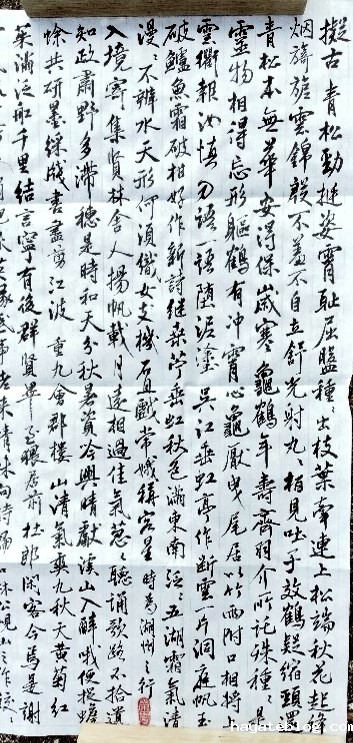 擬古 青松勁挺姿霄恥屈盤種〻出枝葉牽連上松端秋花起
烟旖旎雲錦殷不羞不自立舒光射丸〻柏見吐子效鶴疑縮頸還
青松本無華安得保歲寒 龜鶴年壽齊羽介所託殊種〻是
靈物相得忘形軀鶴有沖霄心龜厭曳尾居以竹兩附口相將
雲衢報汝慎勿語一語墮泥塗 吳江垂虹亭作 斷雲一片洞庭帆玉
破鱸魚霜破柑好作新詩継桑苧垂虹秋色滿東南 泛〻五湖霜氣清
漫〻不辨水天形何須織女支機石且戲常娥稱客星 時為湖州之行
入境寄集賢林舍人 揚帆載月遠相過佳氣葱〻聽誦歌路不拾遺
知政肅野多滯穗是時和天分秋暑資吟興晴獻溪山入醉哦便捉蟾
蜍共研墨綵牋書盡剪江波 重九會郡樓 山清氣爽九秋天黃菊紅
茱滿泛船千里結言寧有後群賢畢至猥居前杜郎閑客今焉是謝
hagateblog.com